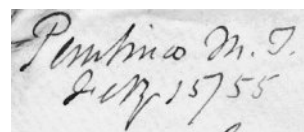 Pembina M. T.
Feby 15/55